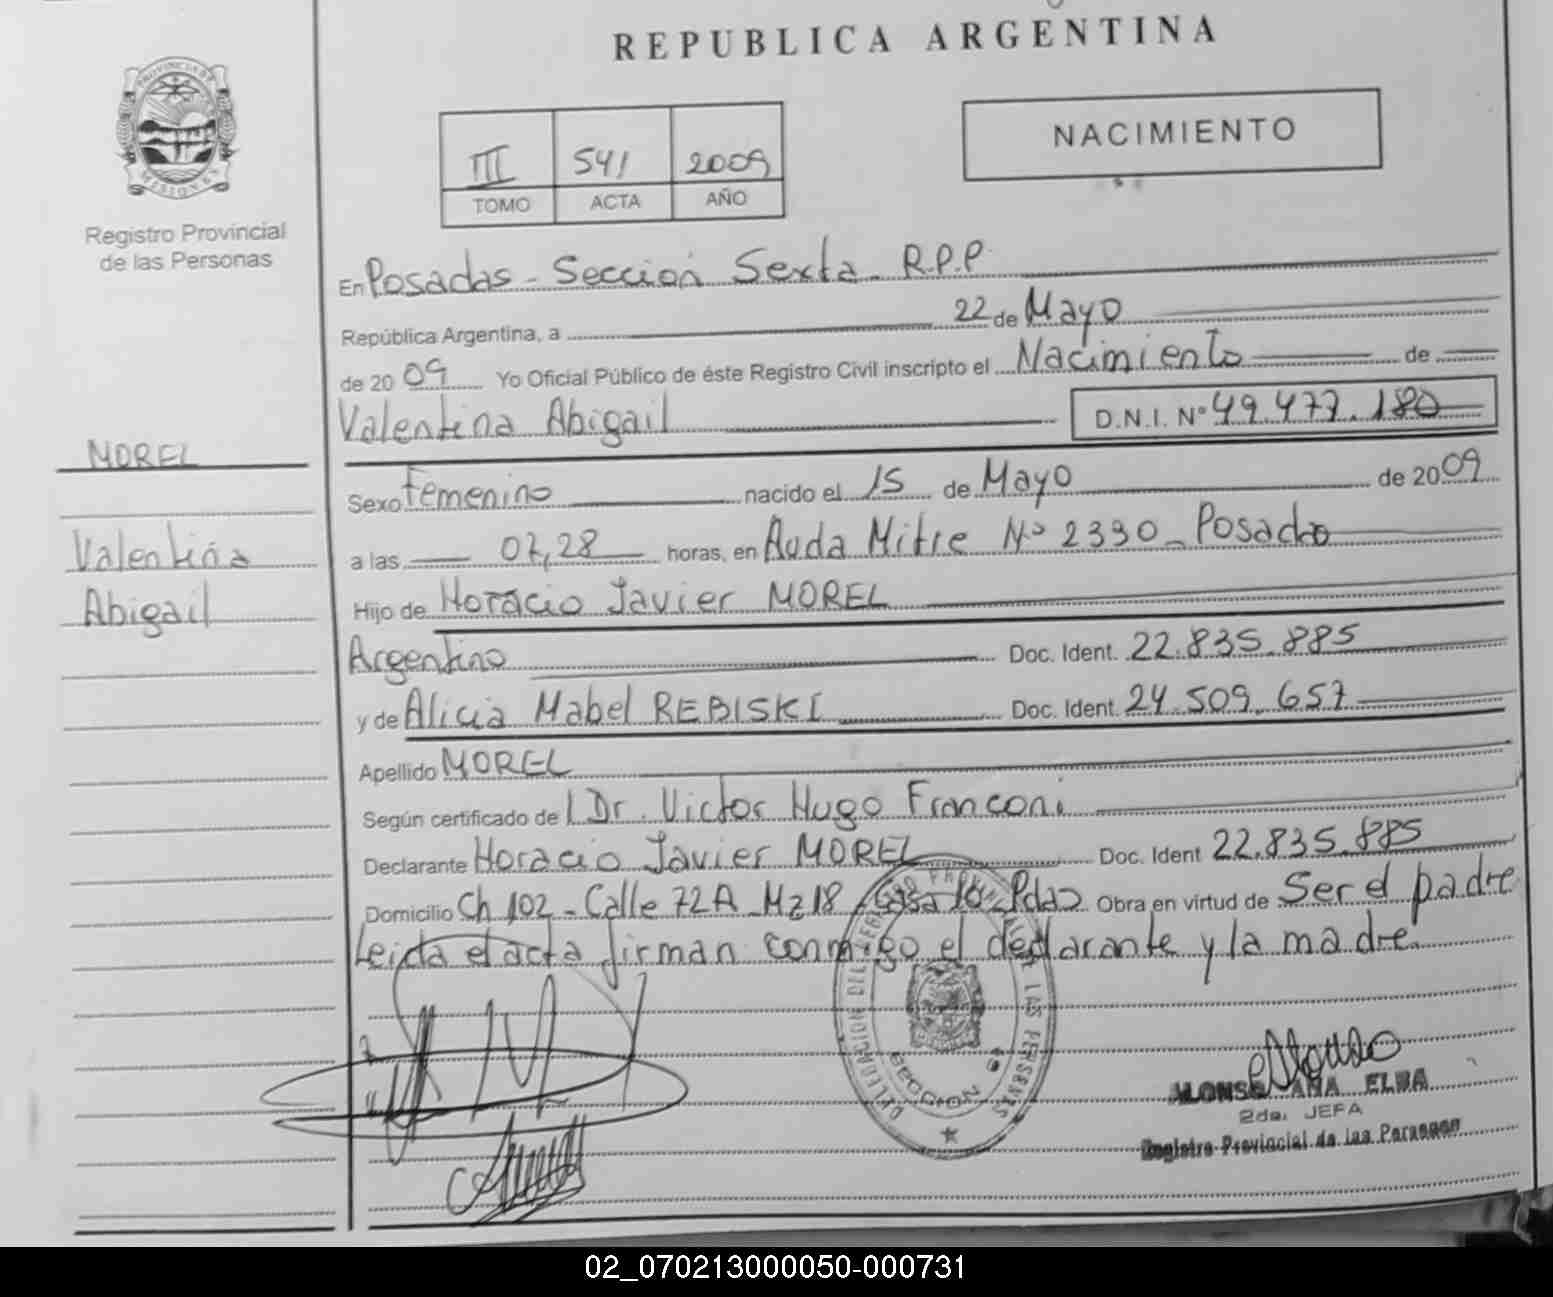 REPUBLICA ARGENTINA
PROVINCIA DE
MISIONES
Registro Provincial
de las Personas
III 541 2009
TOMO ACTA AÑO
NACIMIENTO
En Posadas - Sección Sexta R.P.P.
República Argentina, a 22 de Mayo
de 2009 Yo Oficial Público de éste Registro Civil inscripto el Nacimiento de
Valentina Abigail D.N.I. Nº 49.477.180
MOREL
Sexo Femenino nacido el 15 de Mayo de 2009
Valentina
a las 07,28 horas, en Avda Mitre Nº 2390 - Posadas
Abigail
Hijo de Horacio Javier MOREL
Argentino Doc. Ident. 22.835.885
y de Alicia Mabel REBISKI Doc. Ident. 24.509.657
Apellido MOREL
Según certificado de l Dr. Victor Hugo Franconi
Declarante Horacio Javier MOREL Doc. Ident 22.835.885
Domicilio Ch 102 - Calle 72A - Mz 18 Casa 10 - Pdas Obra en virtud de Ser el padre
Leida el acta firman conmigo el declarante y la madre.
DELEGACION DEL REGISTRO PROVINCIAL DE LAS PERSONAS
SECCION 6ª
ALONSO ANA ELBA
2da. JEFA
Registro Provincial de las Personas
02_070213000050-000731